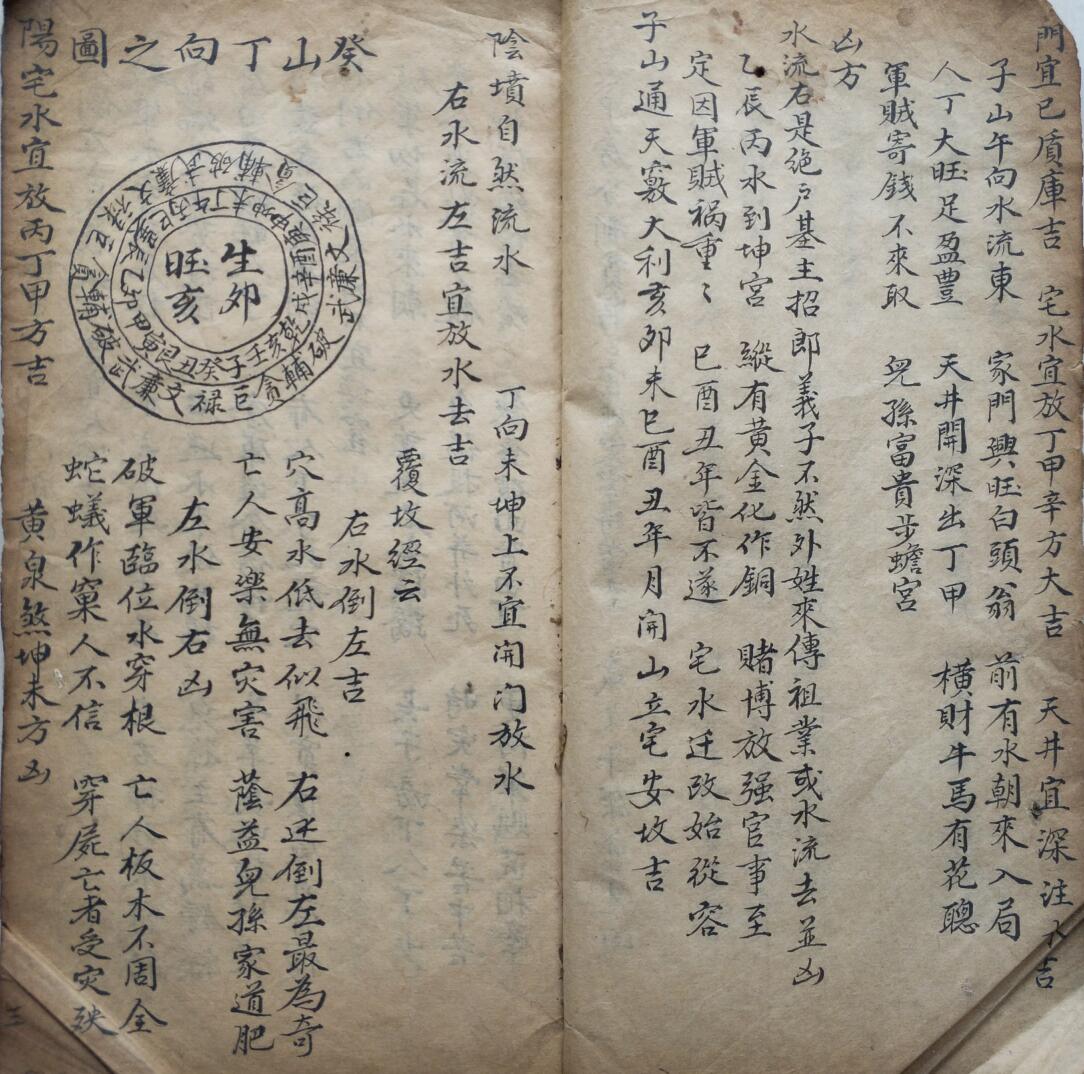 門宜巳質庫吉　宅水宜放丁甲辛方大吉　天井宜深注水吉
子山午向水流東　家門興旺白頭翁　前有水朝來入局
人丁大旺足盈豐　天井開深出丁甲　橫財牛馬有花聰
軍賊寄錢不來取　兒孫富貴步蟾宮
凶方
水流右是絶戶基主招郎義子不然外姓來傳祖業或水流去並凶
乙辰丙水到坤宮　縱有黃金化作銅　賭博放强官事至
定因軍賊禍重〻　巳酉丑年皆不遂　宅水迁改始從容
子山通天竅大利亥夘未巳酉丑年月開山立宅安坟吉
陰墳自然流水　丁向未坤上不宜開门放水
右水流左吉宜放水去吉
覆坟經云
右水倒左吉
穴高水低去似飛　右迯倒左最為奇
亡人安楽無灾害　蔭益兒孫家道肥
左水倒右凶
破軍臨位水穿根　亡人板木不周全
蛇蟻作窠人不信　穿屍亡者受灾殃
黃泉煞坤未方凶
癸山丁向之圖
生夘
旺亥
子壬亥乾戌辛酉庚申坤未丁午丙巳巽辰乙卯甲寅艮丑癸
祿巨貪輔破武廉文祿巨貪輔破武廉文祿巨貪輔破武廉文
陽宅水宜放丙丁甲方吉
三